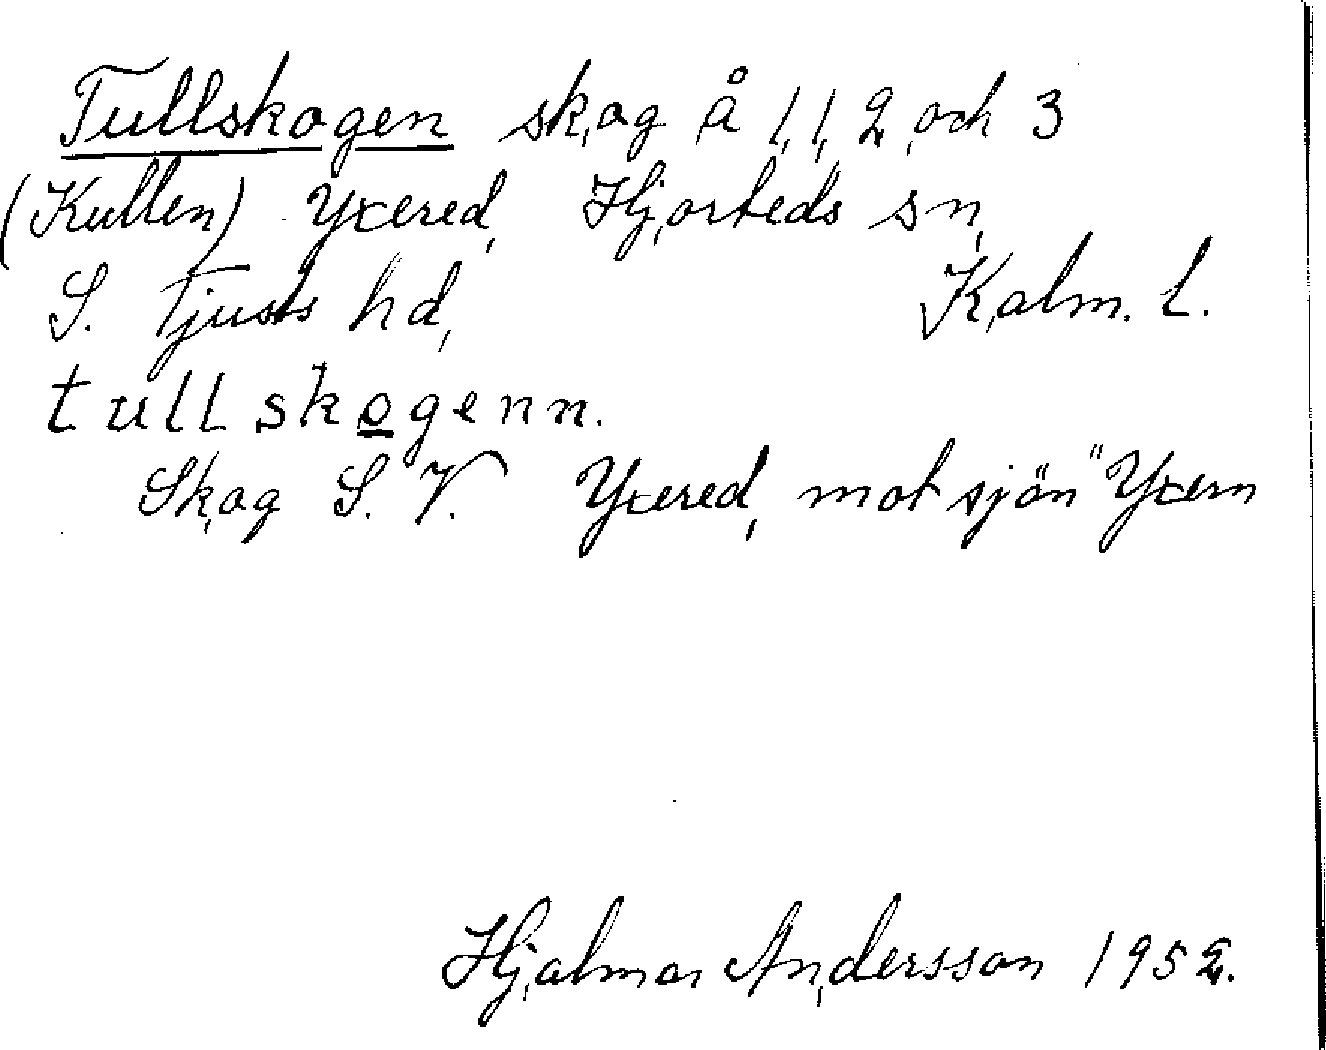 Tullskogen skog å 1, 1, 2 och 3
(Kullen) Yxered, Hjorteds sn,
S. Tjusts hd, Kalm. L.
tullskogenn.
Skog S. V. Yxered, mot sjön "Yxern
Hjalmar Andersson 1952.